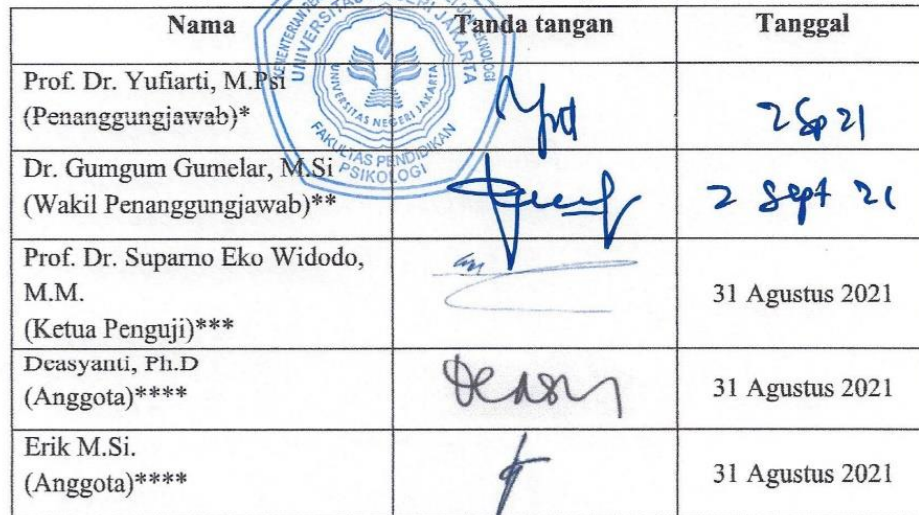 Nama Tanda tangan Tanggal
Prof. Dr. Yufiarti, M.Psi
(Penanggungjawab)* 2 Sep 21
Dr. Gumgum Gumelar, M.Si
(Wakil Penanggungjawab)** 2 Sept 21
Prof. Dr. Suparno Eko Widodo,
M.M.
(Ketua Penguji)*** 31 Agustus 2021
Deasyanti, Ph.D
(Anggota)**** 31 Agustus 2021
Erik M.Si.
(Anggota)**** 31 Agustus 2021
UNIVERSITAS NEGERI JAKARTA
FAKULTAS PENDIDIKAN
PSIKOLOGI